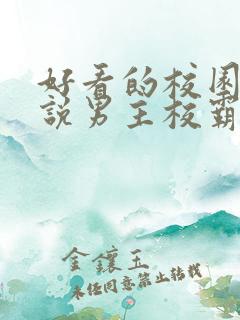 好看的校园
說男主校霸
金鑲玉
未經同意禁止轉載